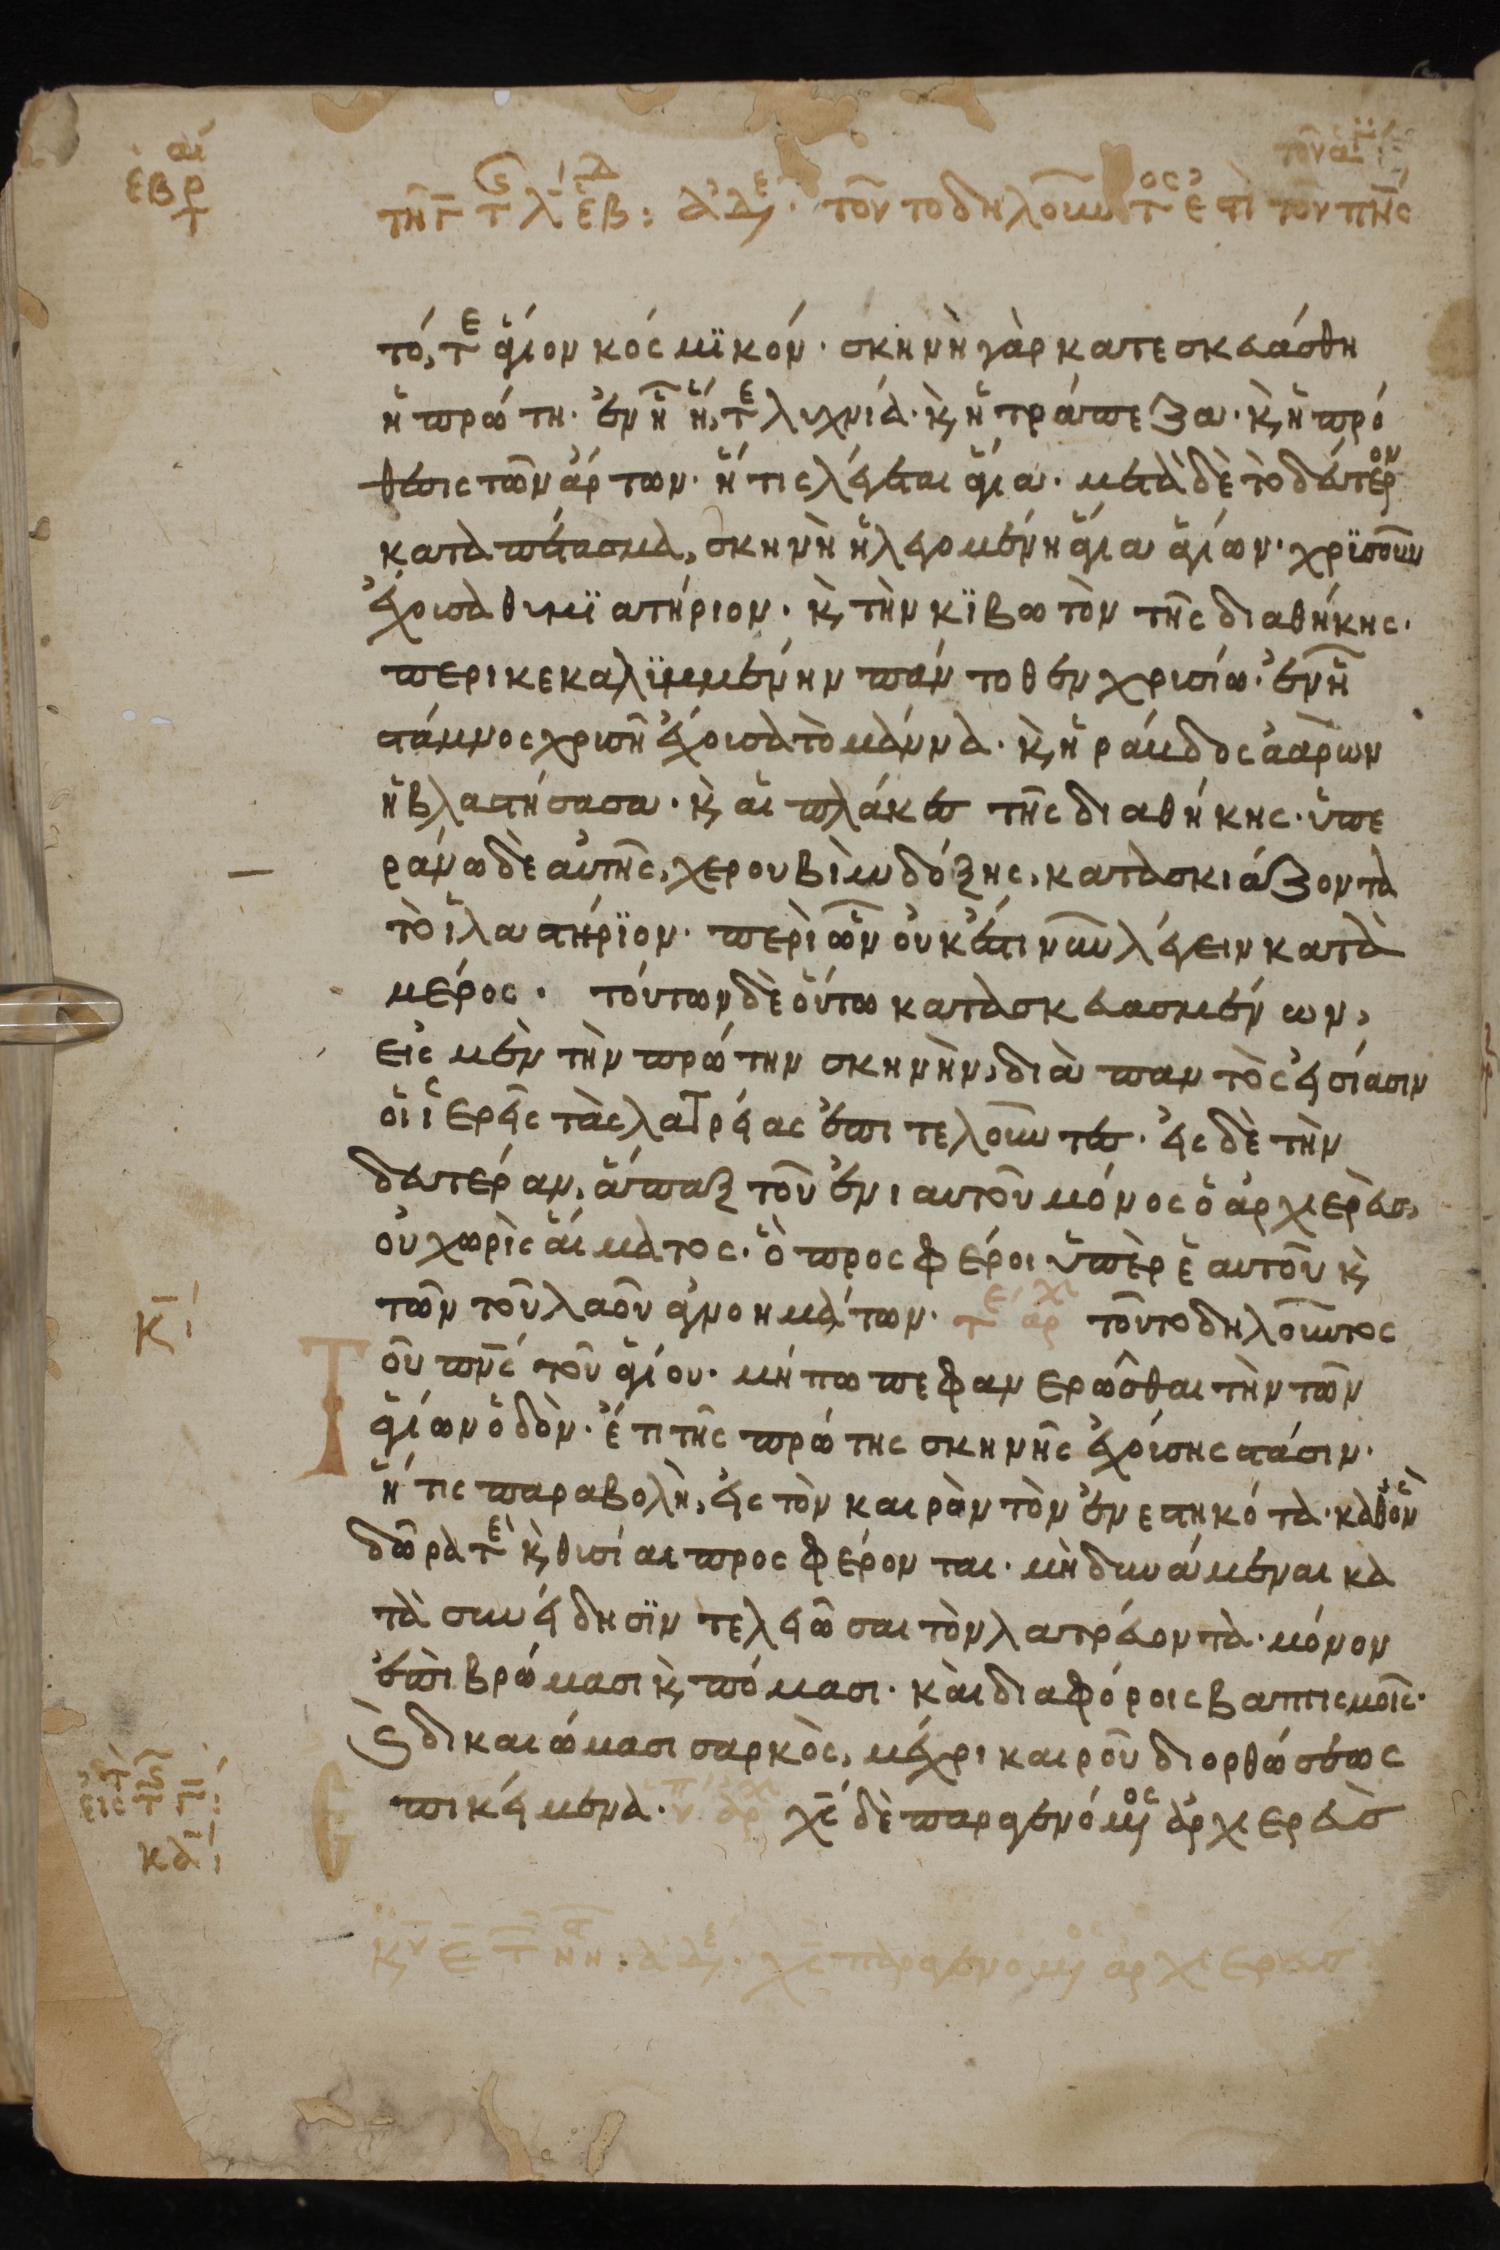 τό, τε ἅγιον κοσμϊκόν· σκηνὴ γὰρ κατεσκευάσθη
ἡ πρώτη· ἐν ἧ ἥ, τε λυχνιά· κ, ἡ τράπεζα· κ, ἡ πρό
θεσις τῶν ἄρτων· ἥτις λέγεται ἅγια· μετὰ δὲ τὸ δεύτερον
καταπέτασμα, σκηνὴ ἡ λεγομένη ἅγια ἁγίων· χρϊσοῦν
ἔχουσα θυμϊατήριον· κ, τὴν κϊβωτὸν τῆς διαθήκης·
περικεκαλϊμμένην πάντοθεν χρισίω· ἐν ἧ
στάμνος χρισῆ ἔχουσα τὸ μάννα· κ, ἡ ράβδος ἀαρὼν
ἡ βλαστήσασα· κ, αἱ πλάκες τῆς διαθήκης· ὑπε
ράνω δὲ αὐτῆς, χερουβὶμ δόξης, κατασκιάζοντα
τὸ ἱλαστήρϊον· περὶ ὧν οὐκ ἔστι νῦν λέγειν κατὰ
μέρος· τούτων δὲ οὕτω κατασκευασμένων,
εἰς μὲν τὴν πρώτην σκηνὴν, διὰ παντὸς εἰσίασιν
οἱ ἱερεῖς τὰς λατρείας ἐπιτελοῦντες· εἰς δὲ τὴν
δευτέραν, ἅπαξ τοῦ ἐνιαυτοῦ μόνος ὁ ἀρχιερεὺς,
οὐ χωρὶς αἵματος· ὃ προσφέροι ὑπὲρ ἑαυτοῦ κ,
τῶν τοῦ λαοῦ ἀγνοημάτων· τε ἀρχ τοῦτο δηλοῦντος
Τοῦ πνς τοῦ ἁγίου· μήπω πεφανερῶσθαι τὴν τῶν
ἁγίων ὁδὸν· ἔτι τῆς πρώτης σκηνῆς ἐχούσης στάσιν·
ἥτις παραβολὴ, εἰς τὸν καιρὸν τὸν ἐνεστηκότα· καθ' ὃν
δῶρά τε κ, θυσίαι προσφέρονται· μὴ δυνάμεναι κα
τὰ συνείδησϊν τελειῶσαι τὸν λατρεύοντα· μόνον
ἐπὶ βρώμασι κ, πόμασι· καὶ διαφόροις βαπτισμοῖς·
κ, δικαιώμασι σαρκὸς, μέχρι καιροῦ διορθώσεως
ἐπικείμενα· χς δὲ παραγενόμενος ἀρχιερεὺς
κ̄
κα